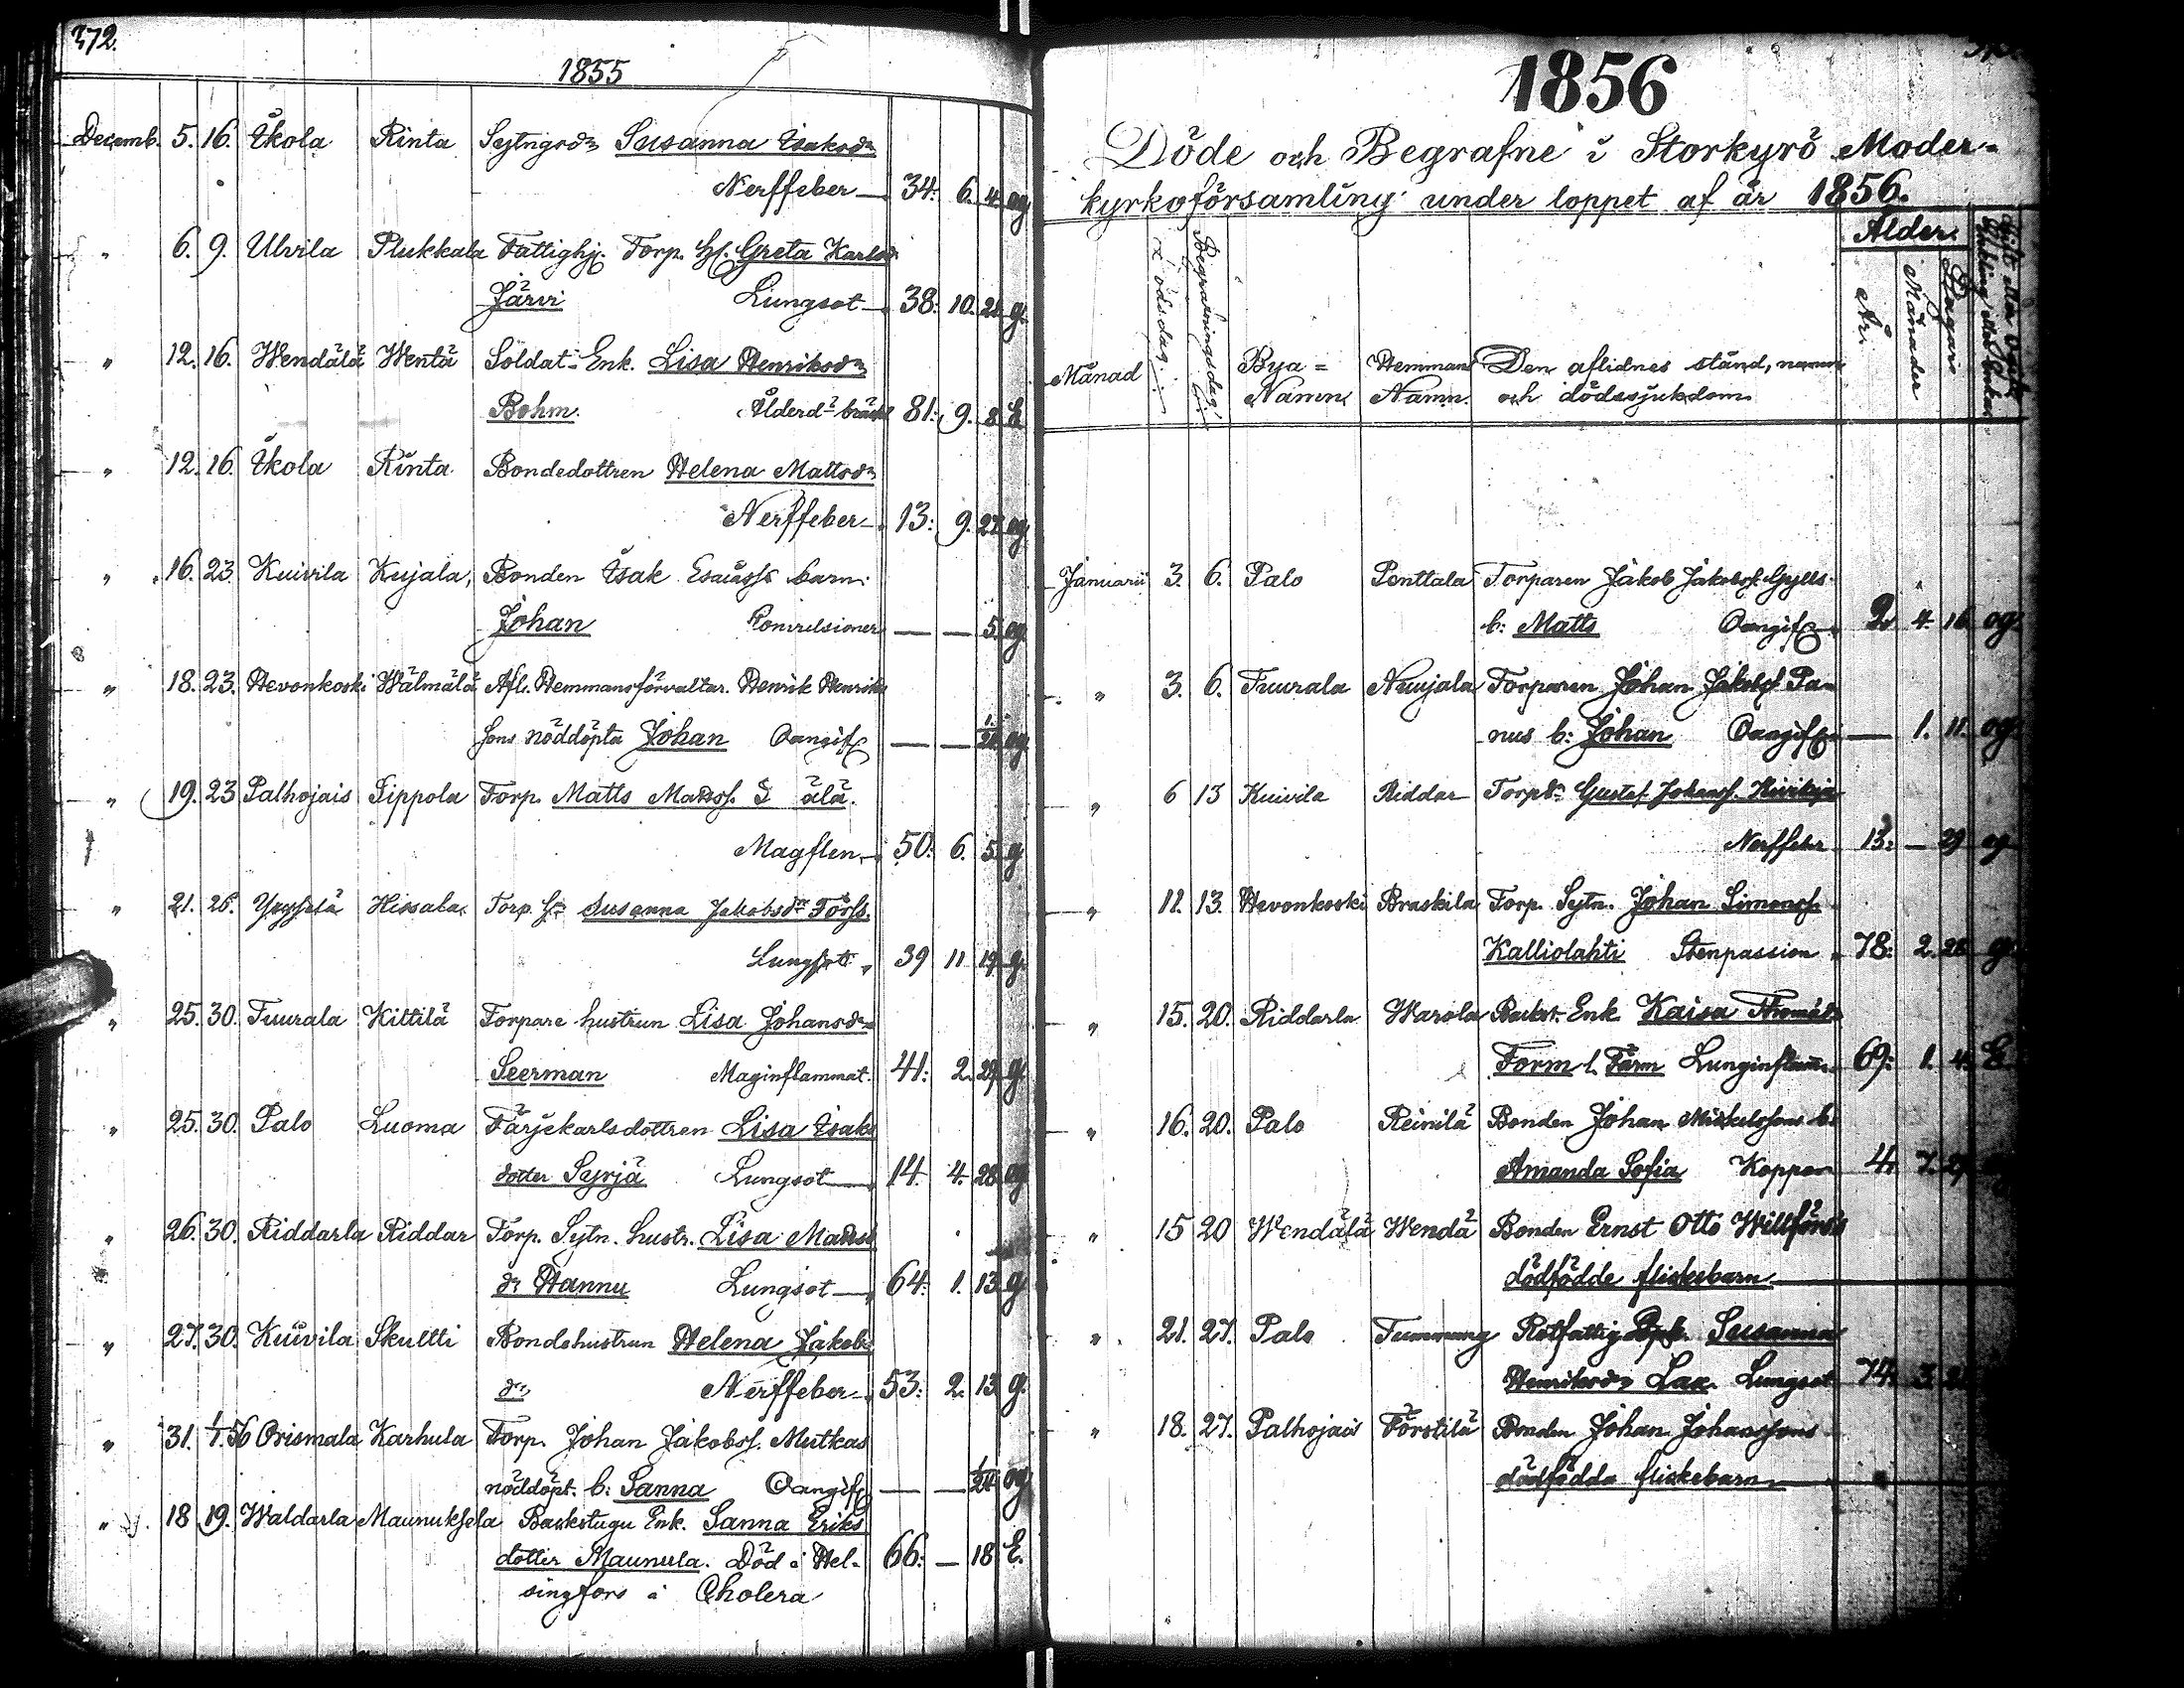 372.
1855
Decemb. 5. 16. Ikola Rinta Sytngsdr Susanna Isaksdr
Nerffeber 34: 6. 4. og
" 6. 9. Ulvila Plukkala Fattighj. Torp. Hs. Greta Karlsd.
Järvi Lungsot 38: 10. 21. g.
" 12. 16. Wendälä Wentä Soldat-Enk. Lisa Henriksdr
Bohm. Ålderd. bräckl 81: 9. 8. E
" 12. 16. Ikola Rinta Bondedottren Helena Mattsdr
Nerffeber 13: 9. 27. og
" 16. 23. Kuivila Kujala, Bonden Isak Esaiass's barn
Johan Konvulsioner — — 5. og
" 18. 23. Hevonkoski Wälmälä Afl. Hemmansförvaltar. Henrik Henriks
sons nöddöpta Johan Oangif — — og
" 19. 23 Palhojais Sippola Torp. Matts Matss. älä.
Magflen. 50: 6. 5. g
" 21. 26. Hissala Torp. hu Susanna Jakobsdr Forss.
Lungsot 39 11 19. g.
" 25. 30. Tuurala Kittilä Torpare hustrun Lisa Johansdr
Seerman Maginflammat. 41: 2. 29. g
" 25. 30. Palo Luoma Färjekarlsdottren Lisa Isaks
dotter Syrjä Lungsot 14. 4. 28. og
" 26. 30. Riddarla Riddar Torp. Sytn. hustr. Lisa Matts
dr Hannu Lungsot 64: 1. 13. g
" 27. 30. Kuivila Skultti Bondehustrun Helena Jakobs
dr Nerffeber 53: 2. 13. g.
" 31. 1/1.56 Orismala Karhula Torp. Johan Jakobss. Mutkas
nöddöpt. b: Sanna Oangif — — 1/24. og
" 18 19. Waldarla Maunuksela Backstugu Enk. Sanna Eriks
dotter Maunula. Död i Hel- 66: — 18 E.
singfors i Cholera
1856
Döde och Begrafne i Storkyrö Moder-
kyrkoförsamling under loppet af år 1856.
Månad Dödsdag. Begrafningsdag. Bya= Namn. Hemmans Namn. Den aflidnes stånd, namn och dödssjukdom Ålder. År. Månader Dagar
Januarii 3. 6. Palo Penttala Torparen Jakob Jakobss. Gylls
b: Matts Oangif 2. 4. 16 og.
" 3. 6. Tuurala Nuujala Torparen Johan Jakobs. Pa-
nus b: Johan Oangif — 1. 11. og
" 6 13 Kuivila Riddar Torpdr Gustaf Johanss.
Nerffeber 13. — 29 og
" 11. 13. Hevonkoski Braskila Torp. Sytn. Johan Simonss.
Kalliolahti Stenpassion 78: 2. 26. g.
" 15. 20. Riddarla Warola Backst. Enk. Kaisa Thomäd.
Form l. Färm Lunginflam. 69: 1. 4. E.
" 16. 20. Palo Reinilä Bonden Johan Mickelssons b:
Amanda Sofia Koppor 4. 7. 29.
" 15 20 Wendälä Wendä Bonden Ernst Otto Willfors's
dödfödde flickebarn
" 21. 27. Palo Rotfattig Susanna
Henriksdr Lax. Lungsot 74. 3.
" 18. 27. Palhojais Förstilä Bonden Johan Johanssons
dödfödda flickebarn